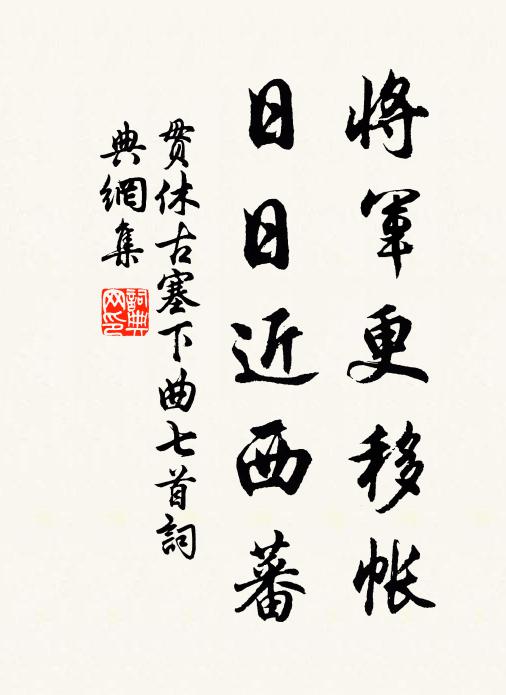 將軍更移帳
日日近西蕃
貫休古塞下曲七首詞
典網集
詞典網印